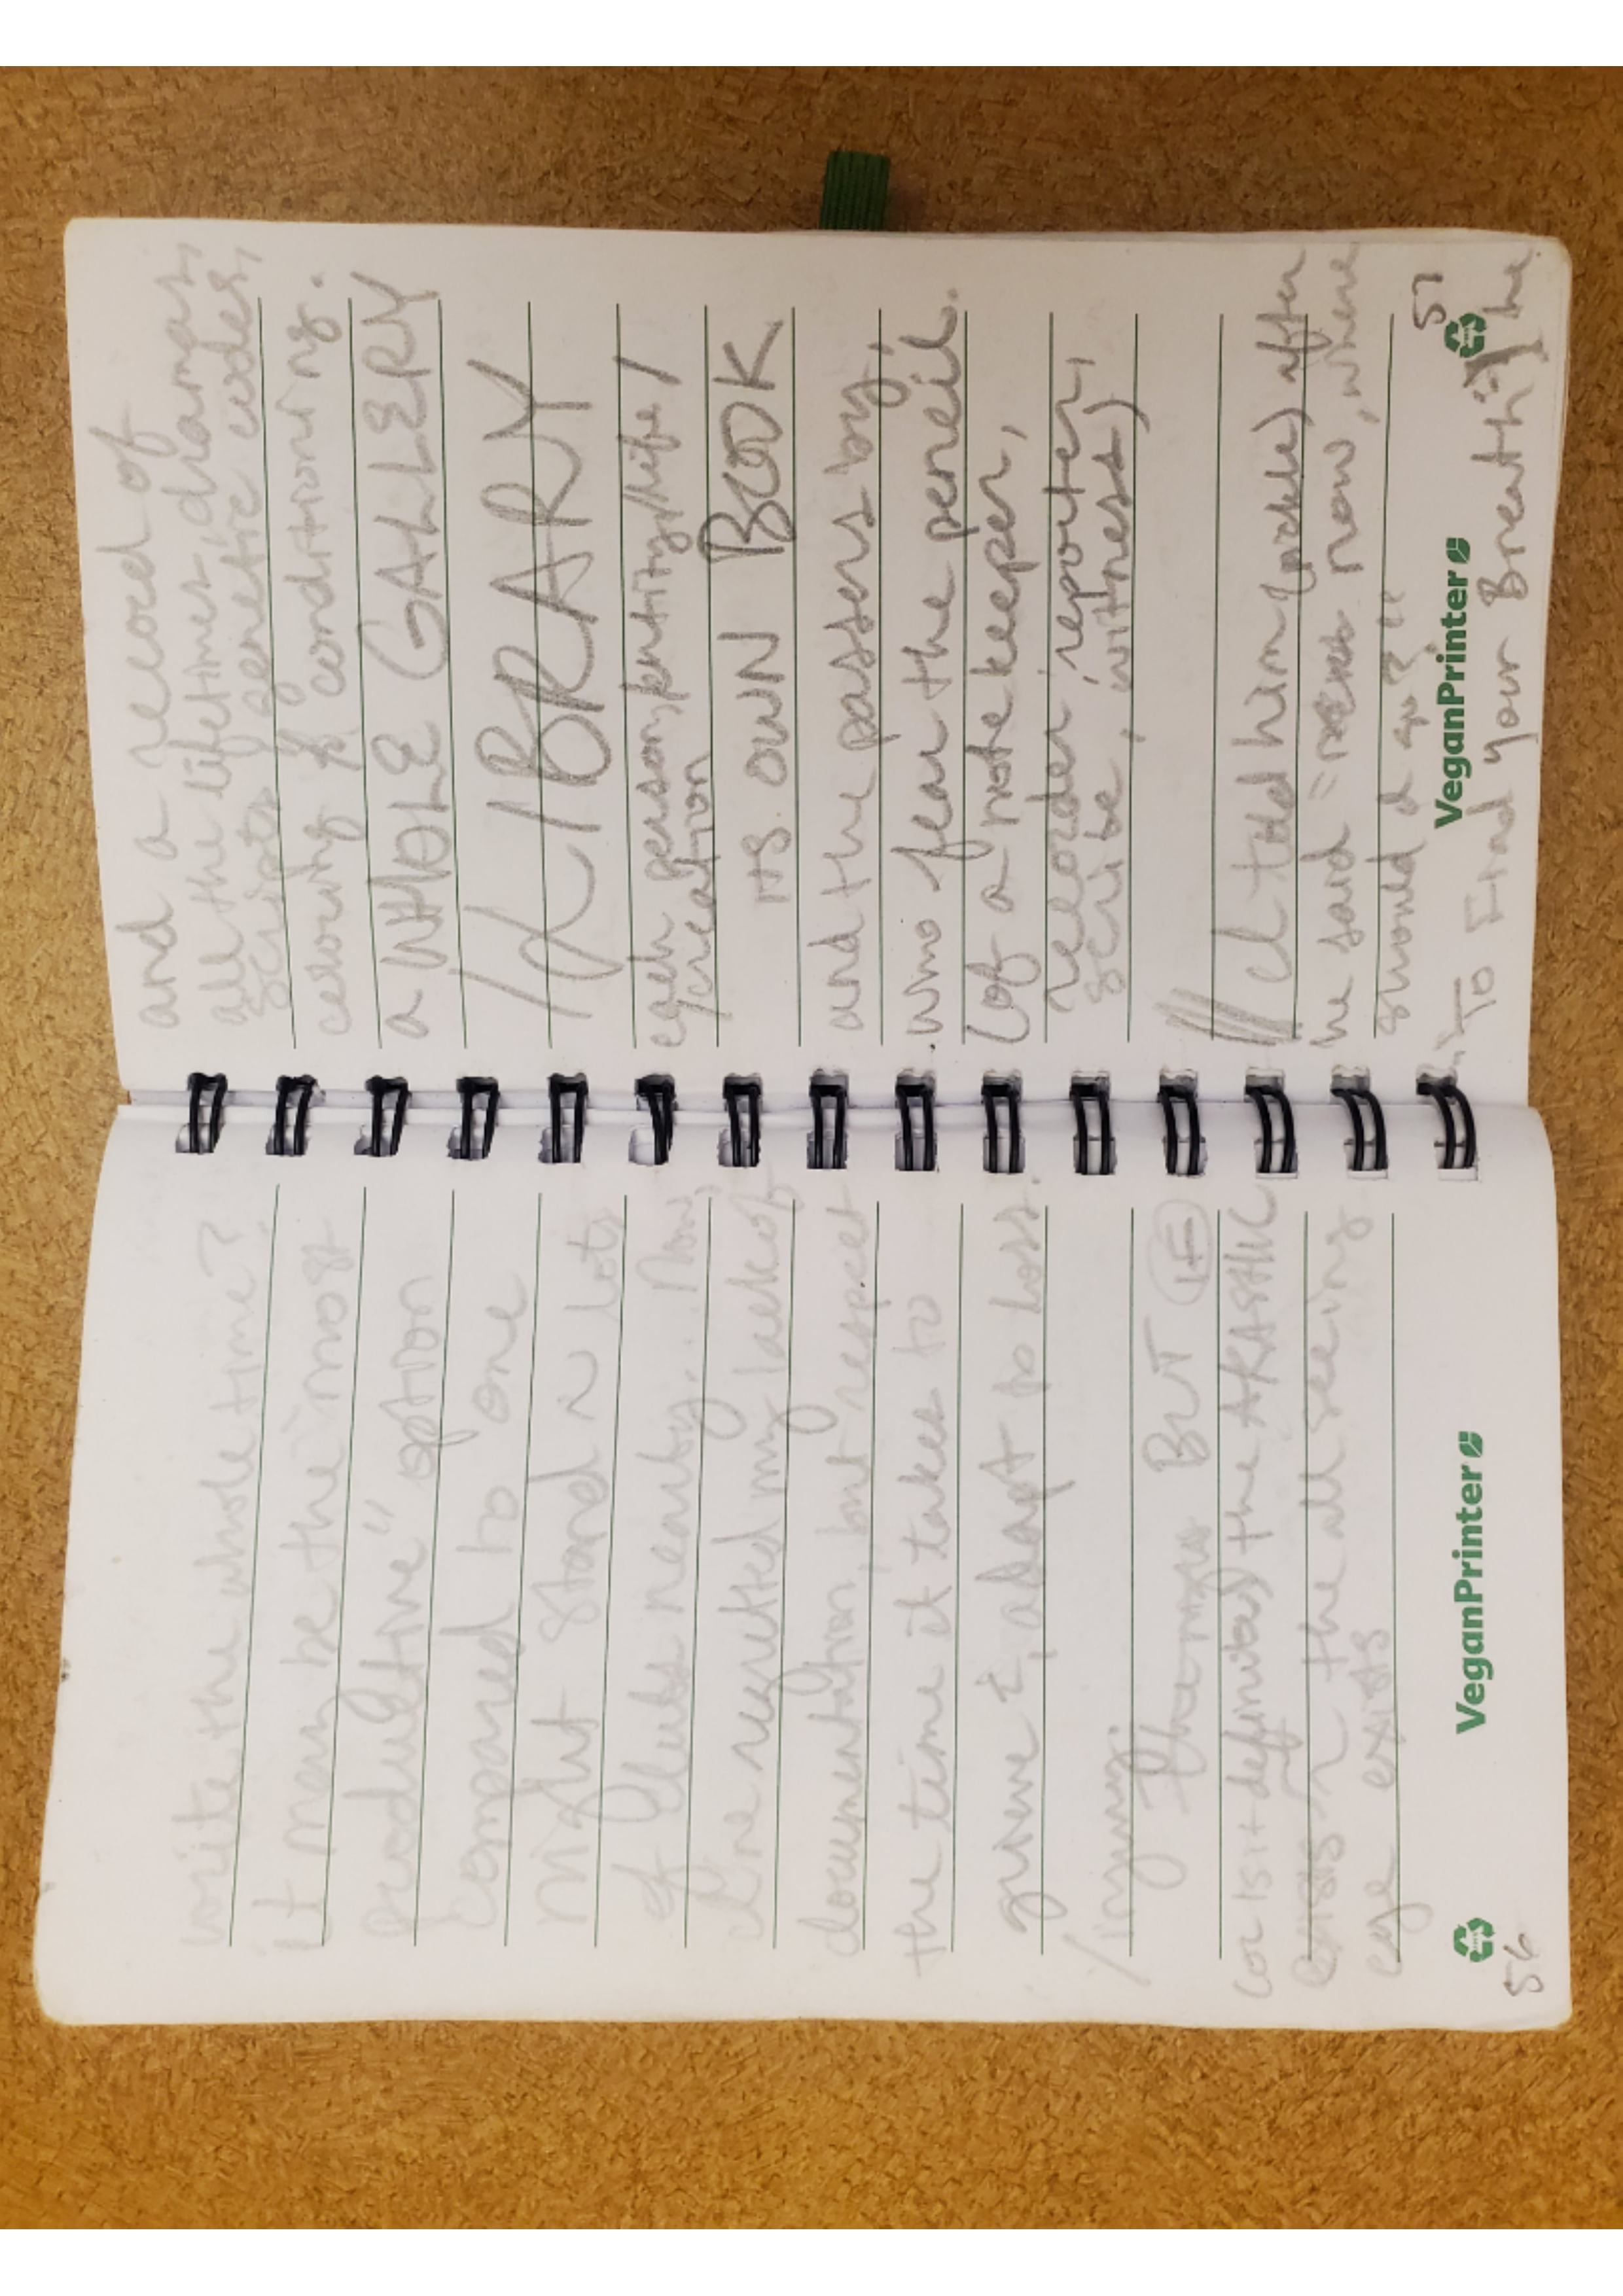 write the whole time?
it may be the "most
productive" option
compared to one
might stand n lots
of clubs nearby. Now,
one regretted my lack of
documentation, but respect
the time it takes to
grieve &, adapt to loss.
/injury. BUT IF
(or is it definitely) the AKASHIC
n the all seeing
eye exists
VeganPrinter
56
and a record of
all the lifetimes, dramas,
scripts, genetic codes,
celuity & conditioning.
a WHOLE GALLERY
/a LIBRARY
each person/entity/life/
creation
its OWN BOOK
and the passers by,
who fear the pencil.
(of a note keeper,
recorder, reporter,
scribe, witness)
/// I told him after
he said now, where
should I go?"
"To Find your Breath," he
VeganPrinter
57